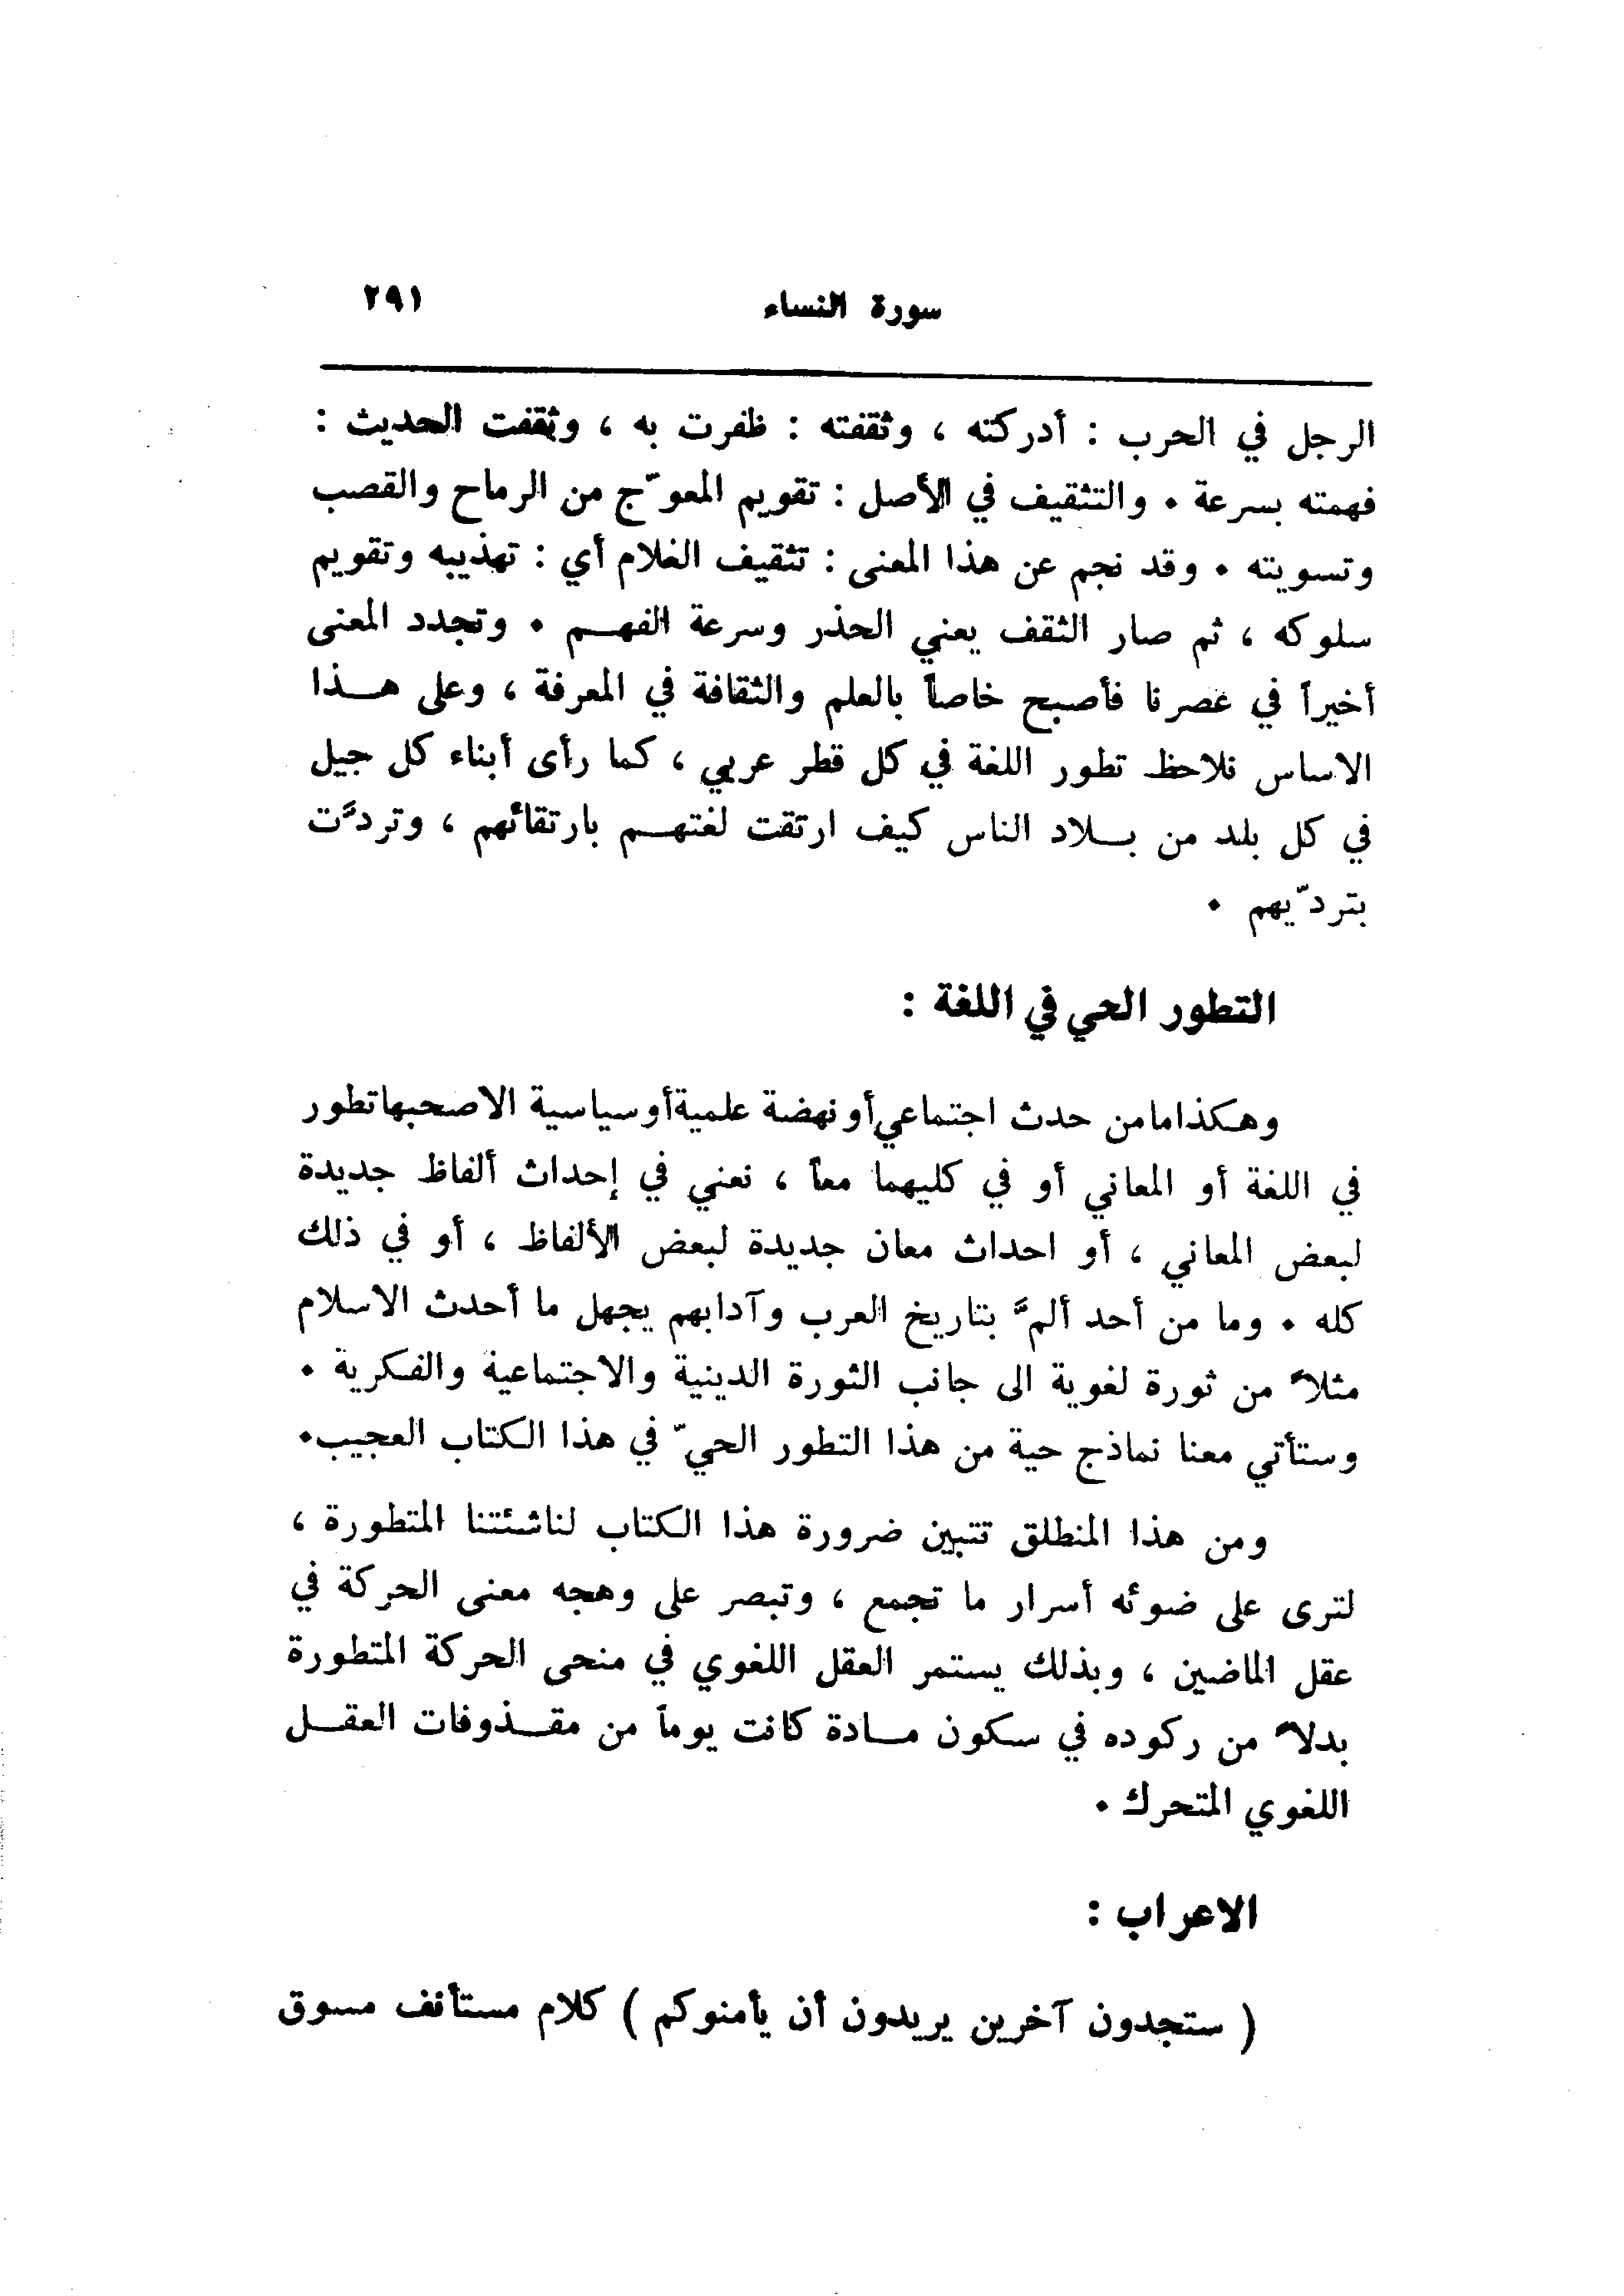 سورة النساء ٢٩١
الرجل في الحرب : أدركته ، وثقفته : ظفرت به ، وثقفت الحديث :
فهمته بسرعة . والتثقيف في الأصل : تقويم المعوّج من الرماح والقصب
وتسويته . وقد نجم عن هذا المعنى : تثقيف الغلام أي : تهذيبه وتقويم
سلوكه ، ثم صار الثقف يعني الحذر وسرعة الفهم . وتجدد المعنى
أخيراً في عصرنا فأصبح خاصاً بالعلم والثقافة في المعرفة ، وعلى هذا
الاساس نلاحظ تطور اللغة في كل قطر عربي ، كما رأى أبناء كل جيل
في كل بلد من بلاد الناس كيف ارتقت لغتهم بارتقائهم ، وتردَّت
بتردّيهم .
التطور الحي في اللغة :
وهكذا ما من حدث اجتماعي أو نهضة علمية أو سياسية الا صحبها تطور
في اللغة أو المعاني أو في كليهما معاً ، نعني في إحداث ألفاظ جديدة
لبعض المعاني ، أو احداث معان جديدة لبعض الألفاظ ، أو في ذلك
كله . وما من أحد ألمَّ بتاريخ العرب وآدابهم يجهل ما أحدث الاسلام
مثلاً من ثورة لغوية الى جانب الثورة الدينية والاجتماعية والفكرية .
وستأتي معنا نماذج حية من هذا التطور الحيّ في هذا الكتاب العجيب.
ومن هذا المنطلق تتبين ضرورة هذا الكتاب لناشئتنا المتطورة ،
لترى على ضوئه أسرار ما تجمع ، وتبصر على وهجه معنى الحركة في
عقل الماضين ، وبذلك يستمر العقل اللغوي في منحى الحركة المتطورة
بدلاً من ركوده في سكون مادة كانت يوماً من مقذوفات العقل
اللغوي المتحرك .
الاعراب :
( ستجدون آخرين يريدون أن يأمنوكم ) كلام مستأنف مسوق